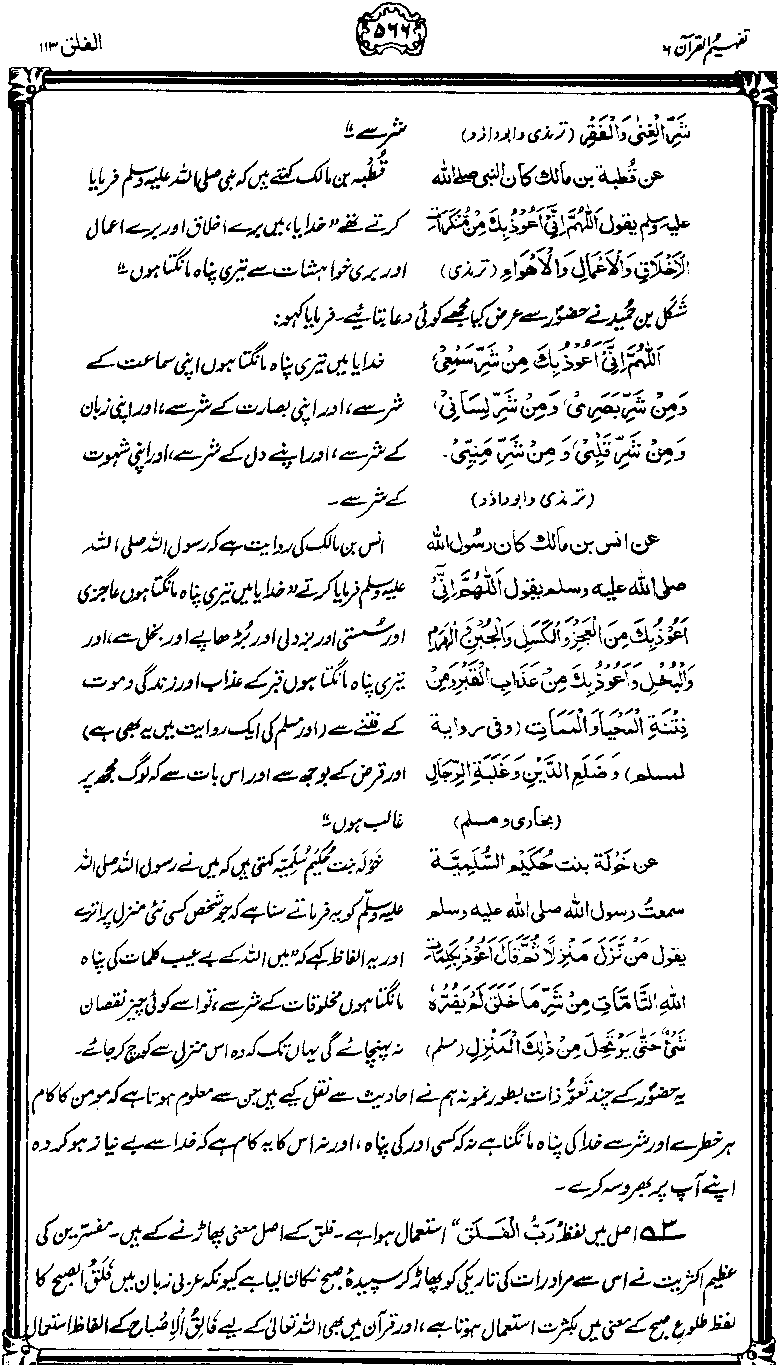 تفہیم القرآن ۶ ۵۶۶ الفلق ۱۱۳
شَرِّ الْغِنٰى وَالْفَقْرِ (ترمذی وابوداؤد) شر سے“
عن قُطبة بن مالك كان النبي صلى الله قُطْبہ بن مالک کہتے ہیں کہ نبی صلی اللہ علیہ وسلم فرمایا
عليه وسلم يقول اَللّٰهُمَّ اِنِّيْ اَعُوْذُ بِكَ مِنْ مُنْكَرَاتِ کرتے تھے ”خدایا، میں برے اخلاق اور برے اعمال
الْاَخْلَاقِ وَالْاَعْمَالِ وَالْاَهْوَاءِ (ترمذی) اور بری خواہشات سے تیری پناہ مانگتا ہوں“
شَکَل بن حُمید نے حضورؐ سے عرض کیا مجھے کوئی دعا بتائیے۔ فرمایا کہو:
اَللّٰهُمَّ اِنِّيْ اَعُوْذُ بِكَ مِنْ شَرِّ سَمْعِيْ، خدایا میں تیری پناہ مانگتا ہوں اپنی سماعت کے
وَمِنْ شَرِّ بَصَرِيْ، وَمِنْ شَرِّ لِسَانِيْ، شر سے، اور اپنی بصارت کے شر سے، اور اپنی زبان
وَمِنْ شَرِّ قَلْبِيْ، وَمِنْ شَرِّ مَنِيِّيْ۔ کے شر سے، اور اپنے دل کے شر سے، اور اپنی شہوت
(ترمذی وابوداؤد) کے شر سے۔
عن انس بن مالك كان رسول الله انس بن مالک کی روایت ہے کہ رسول اللہ صلی اللہ
صلى الله عليه وسلم يقول اَللّٰهُمَّ اِنِّيْ علیہ وسلم فرمایا کرتے ”خدایا میں تیری پناہ مانگتا ہوں عاجزی
اَعُوْذُ بِكَ مِنَ الْعَجْزِ وَالْكَسَلِ وَالْجُبْنِ وَالْهَرَمِ اور سُستی اور بزدلی اور بُڑھاپے اور بخل سے، اور
وَالْبُخْلِ وَاَعُوْذُ بِكَ مِنْ عَذَابِ الْقَبْرِ وَمِنْ تیری پناہ مانگتا ہوں قبر کے عذاب اور زندگی و موت
فِتْنَةِ الْمَحْيَا وَالْمَمَاتِ (وفى رواية کے فتنے سے (اور مسلم کی ایک روایت میں یہ بھی ہے)
لمسلم) وَضَلَعِ الدَّيْنِ وَغَلَبَةِ الرِّجَالِ اور قرض کے بوجھ سے اور اس بات سے کہ لوگ مجھ پر
(بخاری و مسلم) غالب ہوں“
عن خَوْلة بنت حُكَيْم السُّلَمِيَّة خَوْلہ بنت حُکَیْم سُلَمِیّہ کہتی ہیں کہ میں نے رسول اللہ صلی اللہ
سمعتُ رسول الله صلى الله عليه وسلم علیہ وسلم کو یہ فرماتے سنا ہے کہ جو شخص کسی نئی منزل پر اترے
يقول مَنْ نَزَلَ مَنْزِلًا ثُمَّ قَالَ اَعُوْذُ بِكَلِمَاتِ اور یہ الفاظ کہے کہ ”میں اللہ کے بے عیب کلمات کی پناہ
اللهِ التَّامَّاتِ مِنْ شَرِّ مَا خَلَقَ لَمْ يَضُرَّهٗ مانگتا ہوں مخلوقات کے شر سے، تو اسے کوئی چیز نقصان
شَيْءٌ حَتّٰى يَرْتَحِلَ مِنْ ذٰلِكَ الْمَنْزِلِ (مسلم) نہ پہنچائے گی یہاں تک کہ وہ اس منزل سے کوچ کر جائے۔
یہ حضورؐ کے چند تعوُّذات بطور نمونہ ہم نے احادیث سے نقل کیے ہیں جن سے معلوم ہوتا ہے کہ مومن کا کام
ہر خطرے اور شر سے خدا کی پناہ مانگنا ہے نہ کہ کسی اور کی پناہ، اور نہ اس کا یہ کام ہے کہ خدا سے بے نیاز ہو کر وہ
اپنے آپ پر بھروسہ کرے۔
اصل میں لفظ ”رَبُّ الْفَلَقِ“ استعمال ہوا ہے۔ فلق کے اصل معنی پھاڑنے کے ہیں۔ مفسّرین کی
عظیم اکثریت نے اس سے مراد رات کی تاریکی کو پھاڑ کر سپیدۂ صبح نکالنا لیا ہے کیونکہ عربی زبان میں فَلَقُ الصبح کا
لفظ طلوعِ صبح کے معنی میں بکثرت استعمال ہوتا ہے، اور قرآن میں بھی اللہ تعالیٰ کے لیے فَالِقُ الْاِصْبَاحِ کے الفاظ استعمال